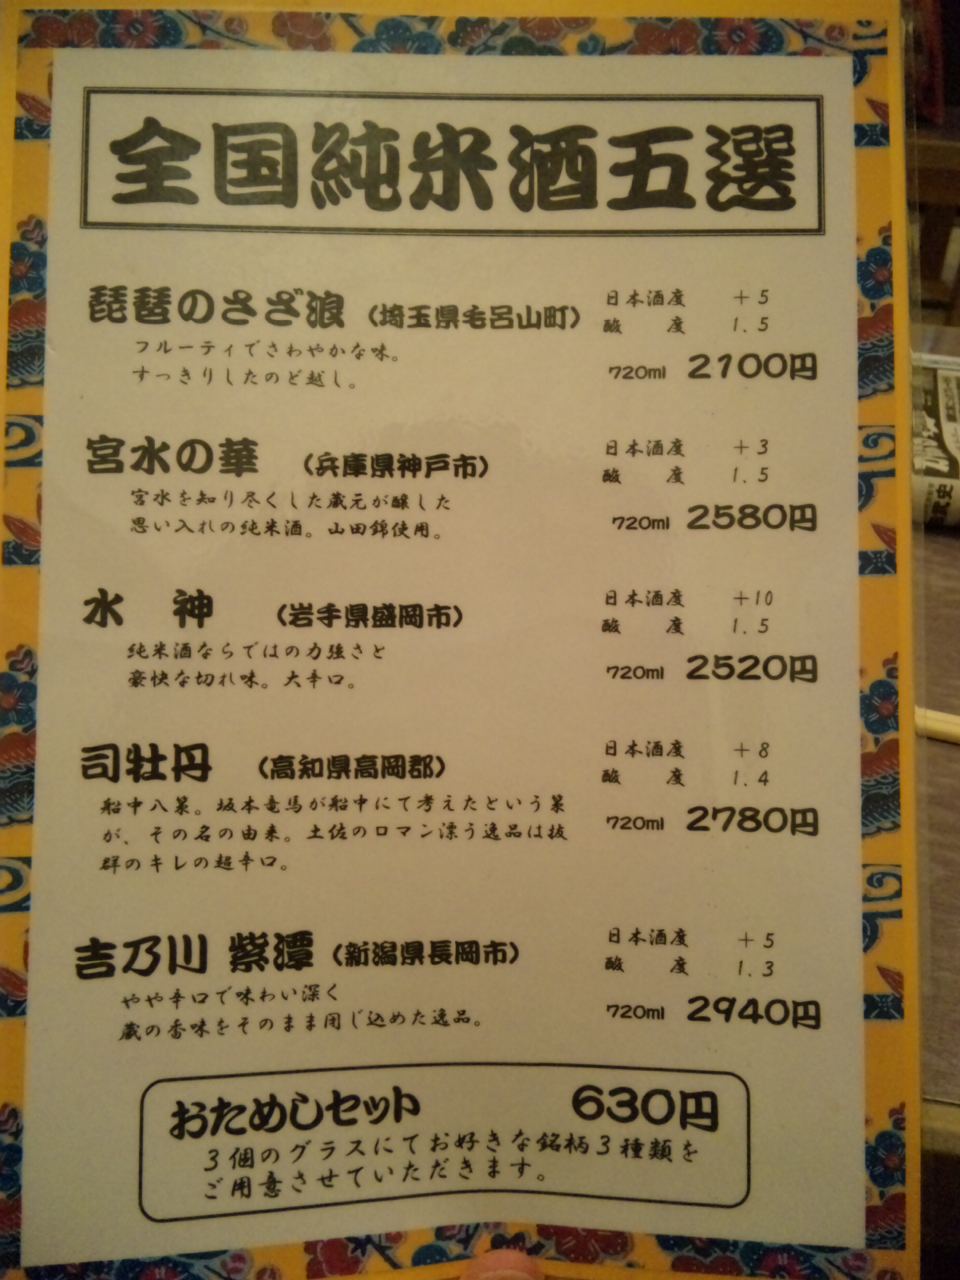 全国純米酒五選
琵琶のさざ浪 (埼玉県毛呂山町) 日本酒度 +5
フルーティでさわやかな味。 酸 度 1.5
すっきりしたのど越し。 720ml 2100円
宮水の華 (兵庫県神戸市) 日本酒度 +3
宮水を知り尽くした蔵元が醸した 酸 度 1.5
思い入れの純米酒。山田錦使用。 720ml 2580円
水 神 (岩手県盛岡市) 日本酒度 +10
純米酒ならではの力強さと 酸 度 1.5
豪快な切れ味。大辛口。 720ml 2520円
司牡丹 (高知県高岡郡) 日本酒度 +8
船中八策。坂本竜馬が船中にて考えたという策 酸 度 1.4
が、その名の由来。土佐のロマン漂う逸品は抜 720ml 2780円
群のキレの超辛口。
吉乃川 紫潭 (新潟県長岡市) 日本酒度 +5
やや辛口で味わい深く 酸 度 1.3
蔵の香味をそのまま閉じ込めた逸品。 720ml 2940円
おためしセット 630円
3個のグラスにてお好きな銘柄3種類を
ご用意させていただきます。